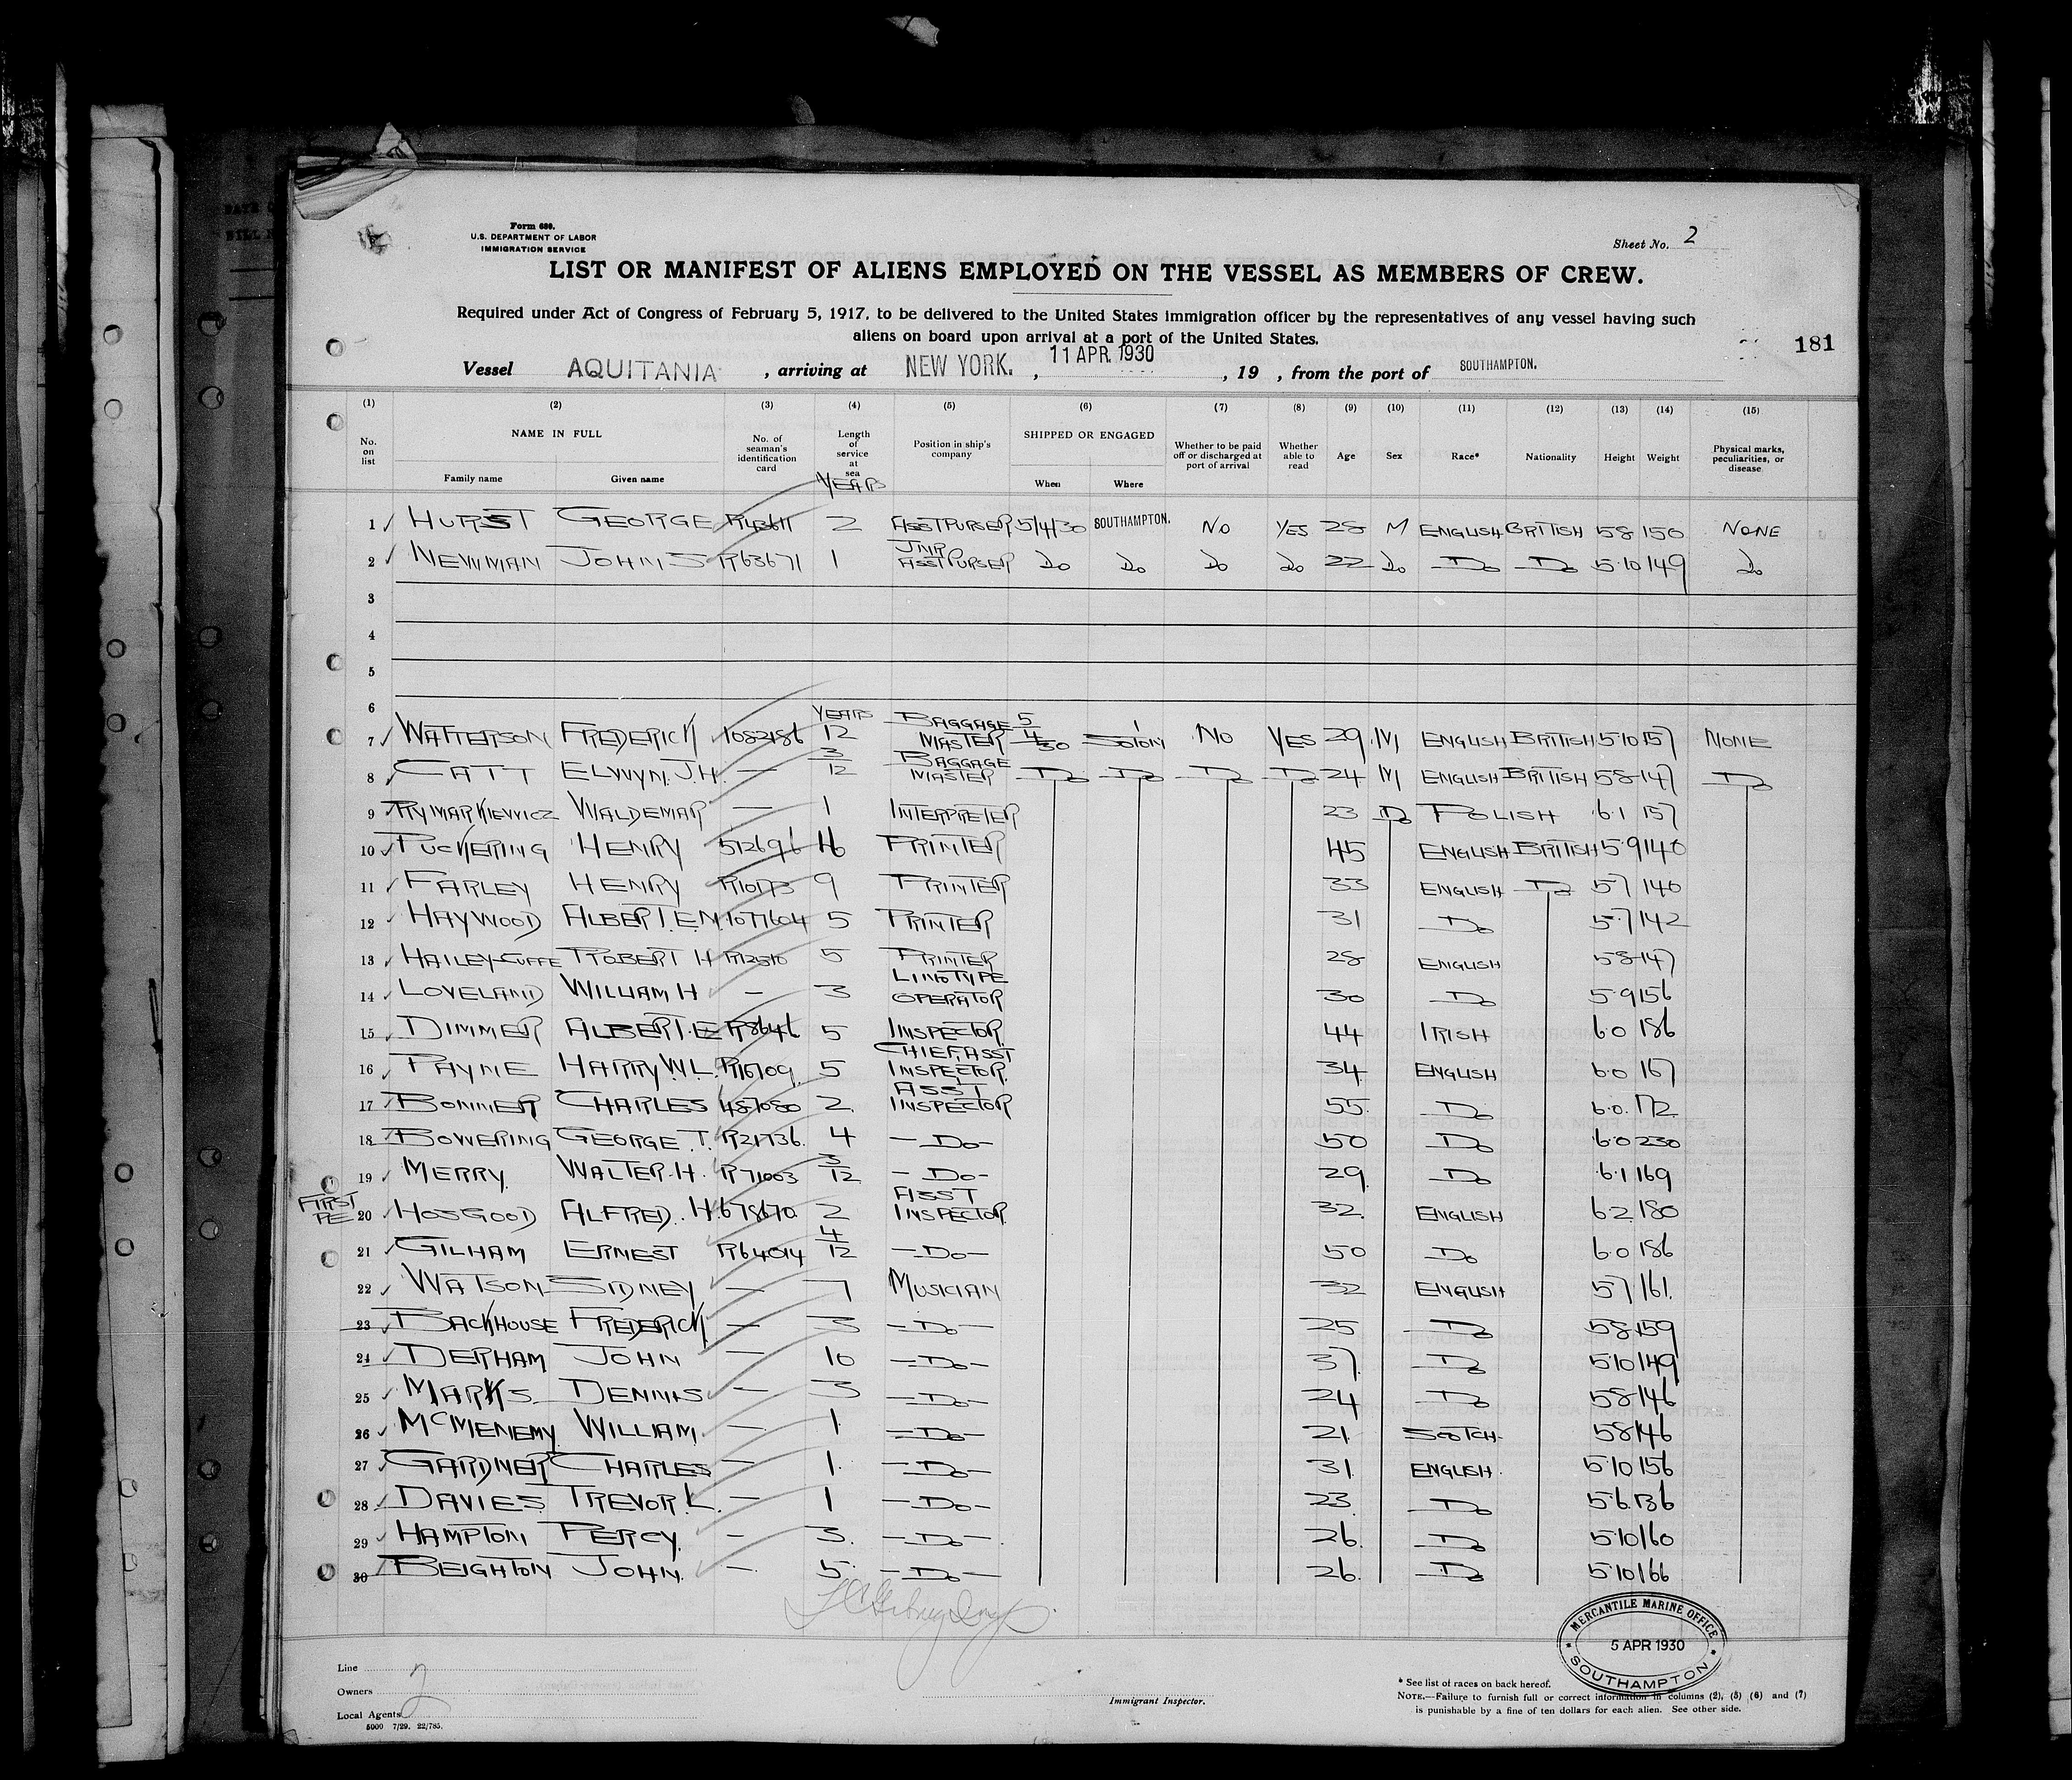 Form 680.
U.S. DEPARTMENT OF LABOR
IMMIGRATION SERVICE
Sheet No. 2
LIST OR MANIFEST OF ALIENS EMPLOYED ON THE VESSEL AS MEMBERS OF CREW.
Required under Act of Congress of February 5, 1917, to be delivered to the United States immigration officer by the representatives of any vessel having such
aliens on board upon arrival at a port of the United States.
181
Vessel AQUITANIA , arriving at NEW YORK. , 11 APR. 1930 , 19 , from the port of SOUTHAMPTON.
(1) (2) (3) (4) (5) (6) (7) (8) (9) (10) (11) (12) (13) (14) (15)
No. on list NAME IN FULL Family name Given name No. of seaman's identification card Length of service at sea Position in ship's company SHIPPED OR ENGAGED When Where Whether to be paid off or discharged at port of arrival Whether able to read Age Sex Race* Nationality Height Weight Physical marks, peculiarities, or disease
YEARS
1 HURST GEORGE R43611 2 ASST PURSER 5/4/30 SOUTHAMPTON. NO YES 28 M ENGLISH BRITISH 58 150 NONE
2 NEWMAN JOHN S R63671 1 JNR ASST PURSER Do Do Do Do 22 Do Do Do 5.10 149 Do
3
4
5
6
7 WATTERSON FREDERICK 1082186 YEARS 12 BAGGAGE MASTER 5/4/30 SOTON NO YES 29 M ENGLISH BRITISH 5.10 157 NONE
8 CATT ELWYN. J.H. — 3/12 BAGGAGE MASTER Do Do Do Do 24 M ENGLISH BRITISH 58 147 Do
9 RYMARKIEWICZ WALDEMAR — 1 INTERPRETER 23 Do POLISH 6.1 157
10 PUCKERING HENRY 512696 16 PRINTER 45 ENGLISH BRITISH 5.9 140
11 FARLEY HENRY R10173 9 PRINTER 33 ENGLISH Do 57 140
12 HAYWOOD ALBERT. E.N. 1077604 5 PRINTER 31 Do 5.7 142
13 HAILEY-CUFFE ROBERT H R12510 5 PRINTER 28 ENGLISH 58 147
14 LOVELAND WILLIAM H — 3 LINOTYPE OPERATOR 30 Do 5.9 156
15 DIMMER ALBERT. E R8646 5 INSPECTOR. 44 IRISH 6.0 186
16 PAYNE HARRY W.L. R16709 5 CHIEF. ASST INSPECTOR. 34 ENGLISH 6.0 167
17 BONNER CHARLES 487080 2. ASST INSPECTOR 55. Do 6.0. 172
18 BOWERING GEORGE. T. R21736. 4 — Do — 50 Do 6.0 230
19 MERRY. WALTER. H. R71003 3/12 — Do — 29. Do 6.1 169
FIRST PE 20 HOSGOOD ALFRED. H. 678670 2 ASST INSPECTOR. 32. ENGLISH 6.2. 180
21 GILHAM ERNEST R64014 4/12 — Do — 50 Do 6.0 186
22 WATSON SIDNEY — 7 MUSICIAN 32 ENGLISH 57 161.
23 BACKHOUSE FREDERICK — 3 — Do — 25 Do 58 159
24 DERHAM JOHN — 10 — Do — 37. Do 5.10 149
25 MARKS DENNIS — 3 — Do — 24 Do 58 146
26 McMENEMY WILLIAM. — 1. — Do — 21 SCOTCH. 58 146
27 GARDNER CHARLES — 1. — Do — 31. ENGLISH. 5.10 156
28 DAVIES TREVOR L. — 1 — Do — 23. Do 5.6. 136
29 HAMPTON PERCY. — 3. — Do — 26. Do 5.10 160
30 BEIGHTON JOHN. — 5. — Do — 26. Do 5.10 166
MERCANTILE MARINE OFFICE
5 APR 1930
SOUTHAMPTON
Line
Owners
Local Agents
2
5000 7/29. 22/785.
Immigrant Inspector.
* See list of races on back hereof.
NOTE.—Failure to furnish full or correct information in columns (2), (5) (6) and (7)
is punishable by a fine of ten dollars for each alien. See other side.